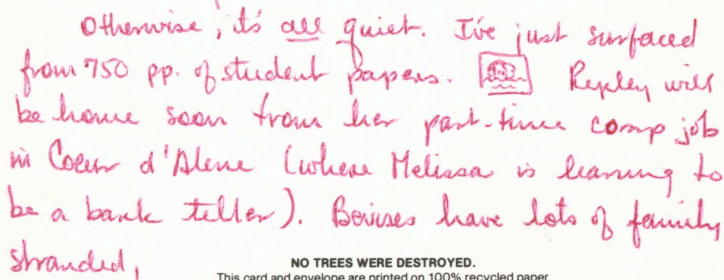 Otherwise, it's all quiet. I've just surfaced
from 750 pp. of student papers. Repley will
be home soon from her part-time comp job
in Coeur d'Alene (where Melissa is learning to
be a bank teller). have lots of family
stranded,
NO TREES WERE DESTROYED.
This card and envelope are printed on 100% recycled paper